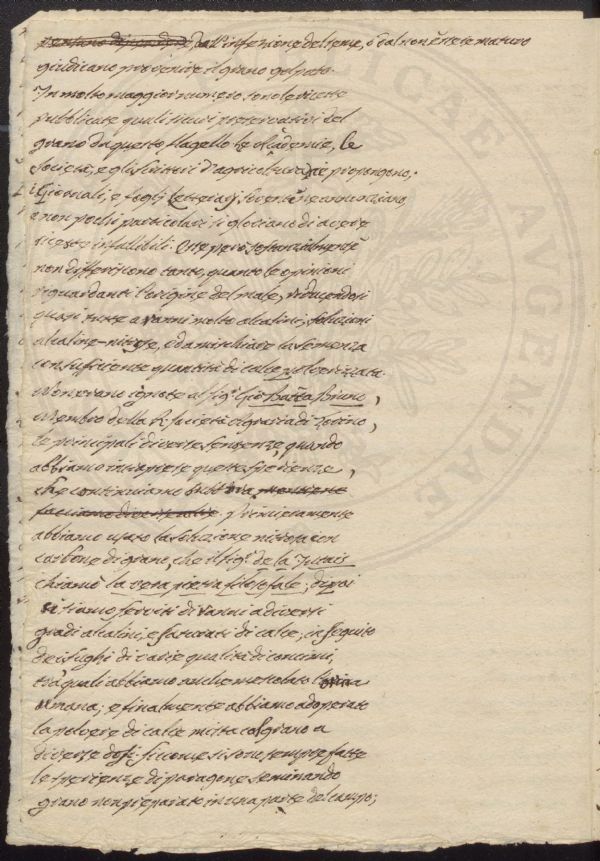 dall'infezione del seme, o dal non essere maturo
giudicano provenire il grano golpato.
In molto maggior numero sono le ricette
pubblicate quali sicuri preservativi del
grano da questo flagello le Accademie, le
Società, e gli scrittori d'agricoltura propongono;
i Giornali, e fogli Letterarj sovente ne annunziano,
e non pochi particolari si gloriano di avere
ricette infallibili. Esse però sostanzialmente
non differiscono tanto, quanto le opinioni
riguardanti l'origine del male, riducendosi
quasi tutte a ranni molto alcalini, soluzioni
alcaline-nitrose, o da mischiare la semenza
con sufficiente quantità di calce polverizzata.
Non erano ignote al sig.r Gio Batta Bruno,
Membro della R. Società Agraria di Torino,
le principali diverse sentenze, quando
abbiamo intraprese queste sperienze,
che continuiamo
Primieramente
abbiamo usato la soluzione nitrosa con
carbone di grano, che il sig.r de la Jutais
chiamò la vera pietra filosofale; di poi
si siamo serviti di ranni a diversi
gradi alcalini, e saturati di calce; in seguito
dei sughi di varie qualità di concimi,
tra quali abbiamo anche mescolato l'orina
umana; e finalmente abbiamo adoperato
la polvere di calce mista col grano a
diverse dosi: siccome si sono sempre fatte
le sperienze di paragone seminando
grano non preparato in una parte del campo;